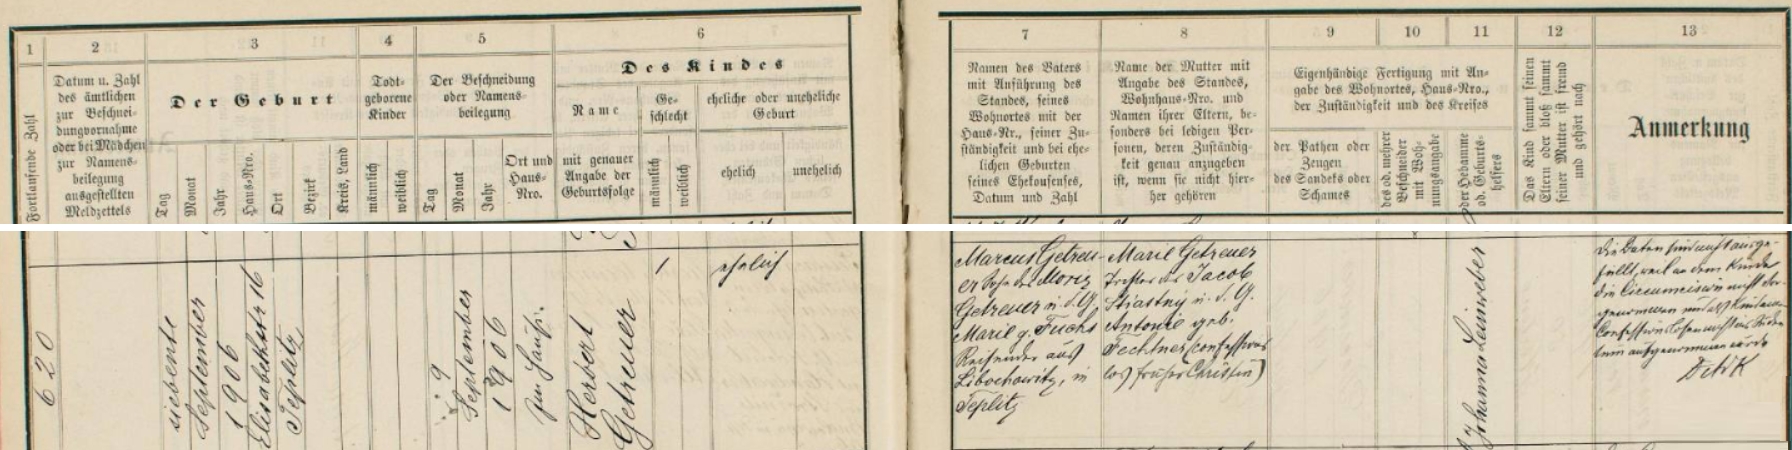 1 2 3 4 5 6
Fortlaufende Zahl
Datum u. Zahl
des ämtlichen
zur Beschnei-
dungvornahme
oder bei Mädchen
zur Namens-
beilegung
ausgestellten
Meldzettels
Der Geburt
Tag
Monat
Jahr
Haus-Nro.
Ort
Bezirk
Kreis, Land
Todt-
geborene
Kinder
männlich
weiblich
Der Beschneidung
oder Namens-
beilegung
Tag
Monat
Jahr
Ort und
Haus-
Nro.
Des Kindes
Name
mit genauer
Angabe der
Geburtsfolge
Ge-
schlecht
männlich
weiblich
eheliche oder uneheliche
Geburt
ehelich
unehelich
7 8 9 10 11 12 13
Namen des Vaters
mit Anführung des
Standes, seines
Wohnortes mit der
Haus-Nr., seiner Zu-
ständigkeit und bei ehe-
lichen Geburten
seines Ehekonsenses,
Datum und Zahl
Name der Mutter mit
Angabe des Standes,
Wohnhaus-Nro. und
Namen ihrer Eltern, be-
sonders bei ledigen Per-
sonen, deren Zuständig-
keit genau anzugeben
ist, wenn sie nicht hier-
her gehören
Eigenhändige Fertigung mit An-
gabe des Wohnortes, Haus-Nro.,
der Zuständigkeit und des Kreises
der Pathen oder
Zeugen
des Sandeks oder
Schames
des od. mehrer
Beschneider
mit Woh-
nungsangabe
der Hebamme
od. Geburts-
helfers
Das Kind sammt seinen
Eltern oder bloß sammt
seiner Mutter ist fremd
und gehört nach
Anmerkung
620
siebente
September
1906
Elisabethstr 16
Teplitz
9
September
1906
zu Hause
Herbert
Getreuer
1
ehelich
Marcus Getreu-
er Sohn des Moriz
Getreuer u. d. G.
Marie g. Fuchs
Reisender aus
Libochowitz, in
Teplitz
Marie Getreuer
Tochter des Jacob
Stiastny u. d. G.
Antonie geb.
Fechtner (confessions
los) früher Christin)
Johanna Leimweber
Die Daten sind nicht ausge-
füllt, weil an dem Kinde
die Circumcision nicht vor-
genommen und das Kind
Confessionslosen nicht ins Juden-
tum aufgenommen wurde